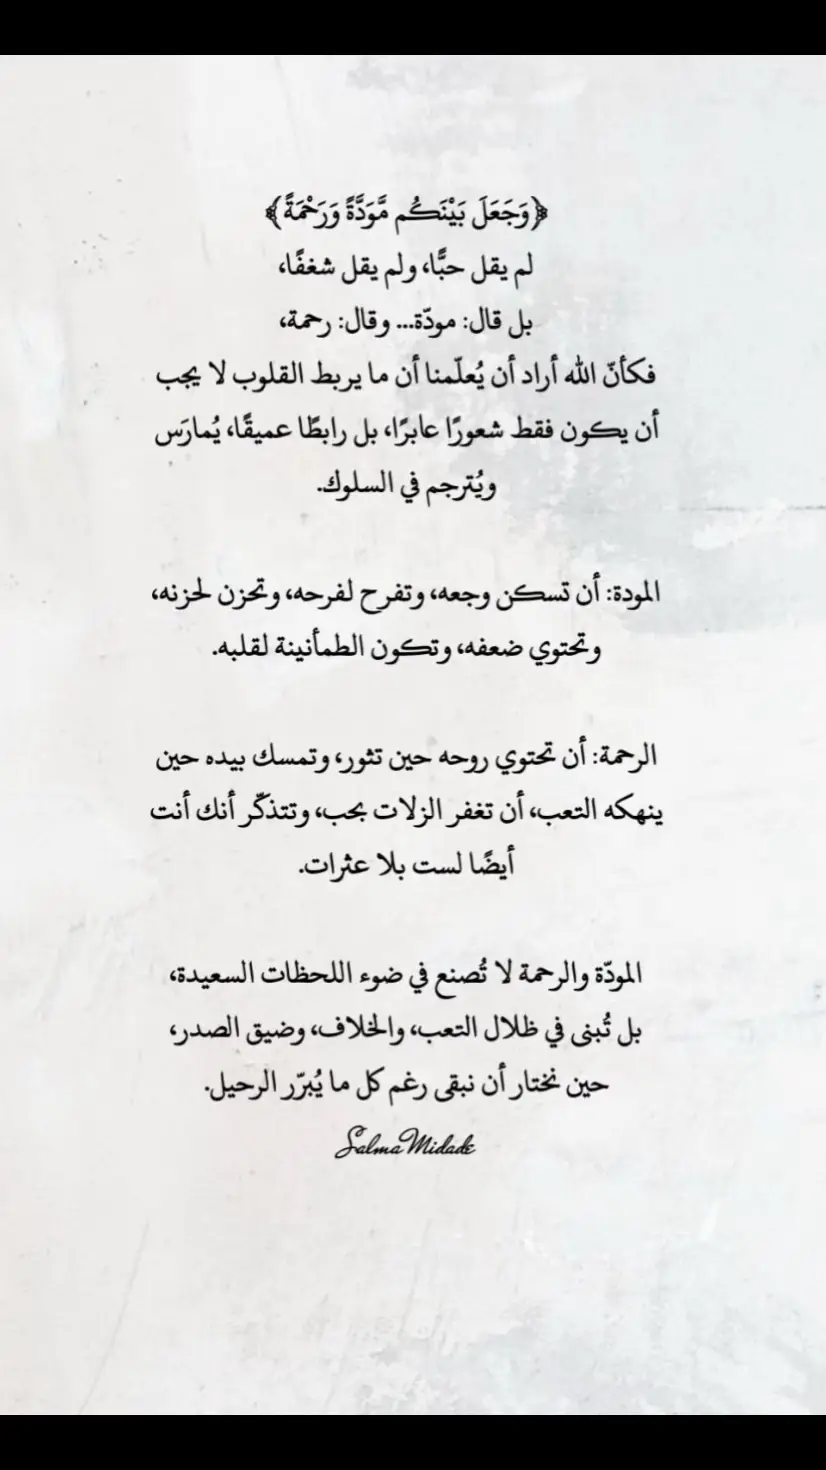 ﴿وَجَعَلَ بَيْنَكُم مَّوَدَّةً وَرَحْمَةً﴾
لم يقل حبًّا، ولم يقل شغفًا،
بل قال: مودّة... وقال: رحمة،
فكأنّ الله أراد أن يُعلّمنا أن ما يربط القلوب لا يجب
أن يكون فقط شعورًا عابرًا، بل رابطًا عميقًا، يُمارَس
ويُترجم في السلوك.
المودة: أن تسكن وجعه، وتفرح لفرحه، وتحزن لحزنه،
وتحتوي ضعفه، وتكون الطمأنينة لقلبه.
الرحمة: أن تحتوي روحه حين تثور، وتمسك بيده حين
ينهكه التعب، أن تغفر الزلات بحب، وتتذكّر أنك أنت
أيضًا لست بلا عثرات.
المودّة والرحمة لا تُصنع في ضوء اللحظات السعيدة،
بل تُبنى في ظلال التعب، والخلاف، وضيق الصدر،
حين نختار أن نبقى رغم كل ما يُبرّر الرحيل.
Salma Midade